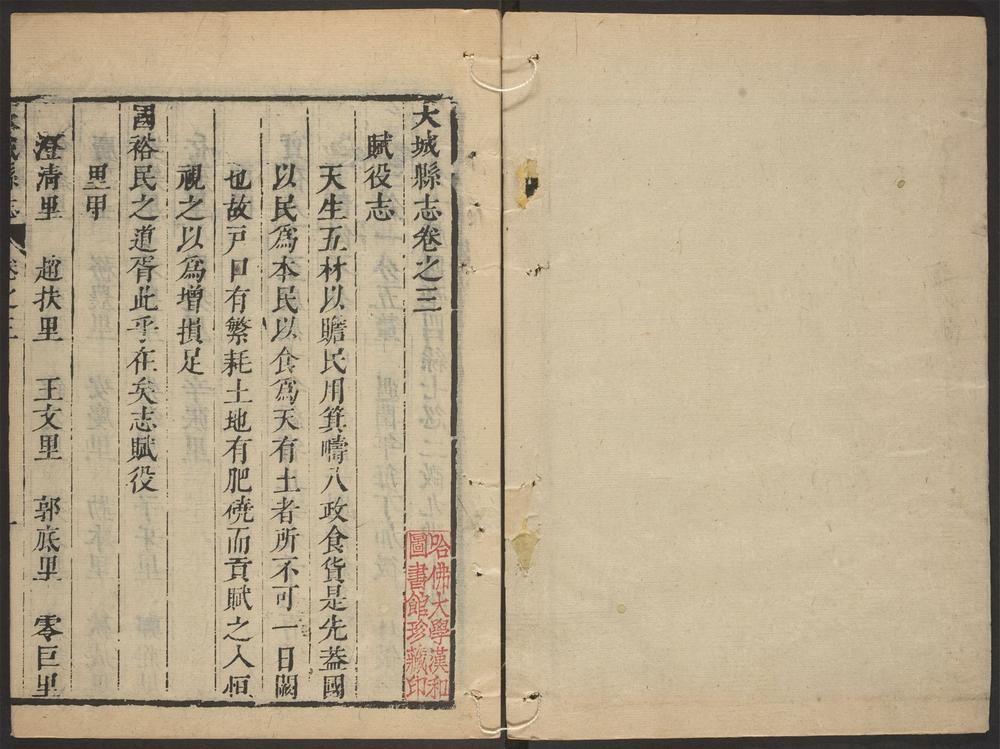 大城縣志卷之三
賦役志
天生五材以贍民用箕疇八政食貨是先葢國
以民爲本民以食爲天有土者所不可一日闕
也故戸口有繁耗土地有肥磽而貢賦之入恒
視之以爲增損足
國裕民之道胥此乎在矣志賦役
里甲
澄清里 趙扶里 王文里 郭底里 零巨里
大城縣志 卷之三 一
哈佛大學漢和
圖書館珍藏印